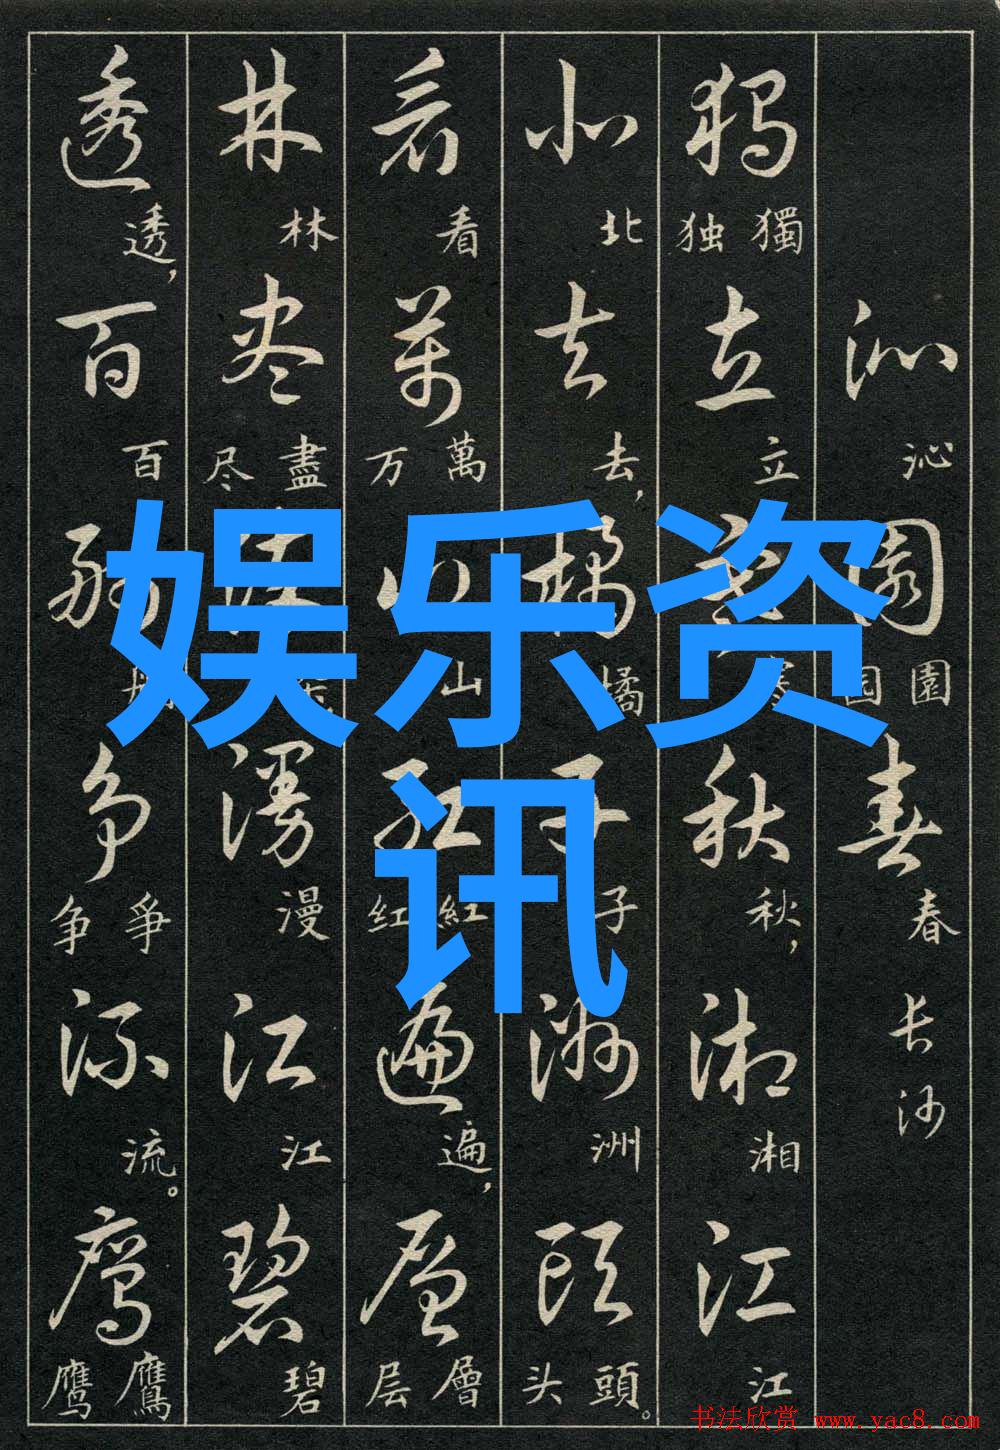 娱乐资
讯
沁 沁 園 園 园 春 春 长沙
独 獨 独 立 立 寒 寒 秋 秋， 湘 湘 江 江
北 北 去 去， 橘 橘 子 子 洲 洲 頭 頭 头。
看 看 萬 萬 万 山 山 紅 紅 红 遍 遍， 層 層 层
林 林 尽 盡 尽 漫 漫 江 江 碧 碧
透 透， 百 百 舸 争 爭 争 流 流。 鷹 鷹 鹰
书法欣赏 www.yac8.com